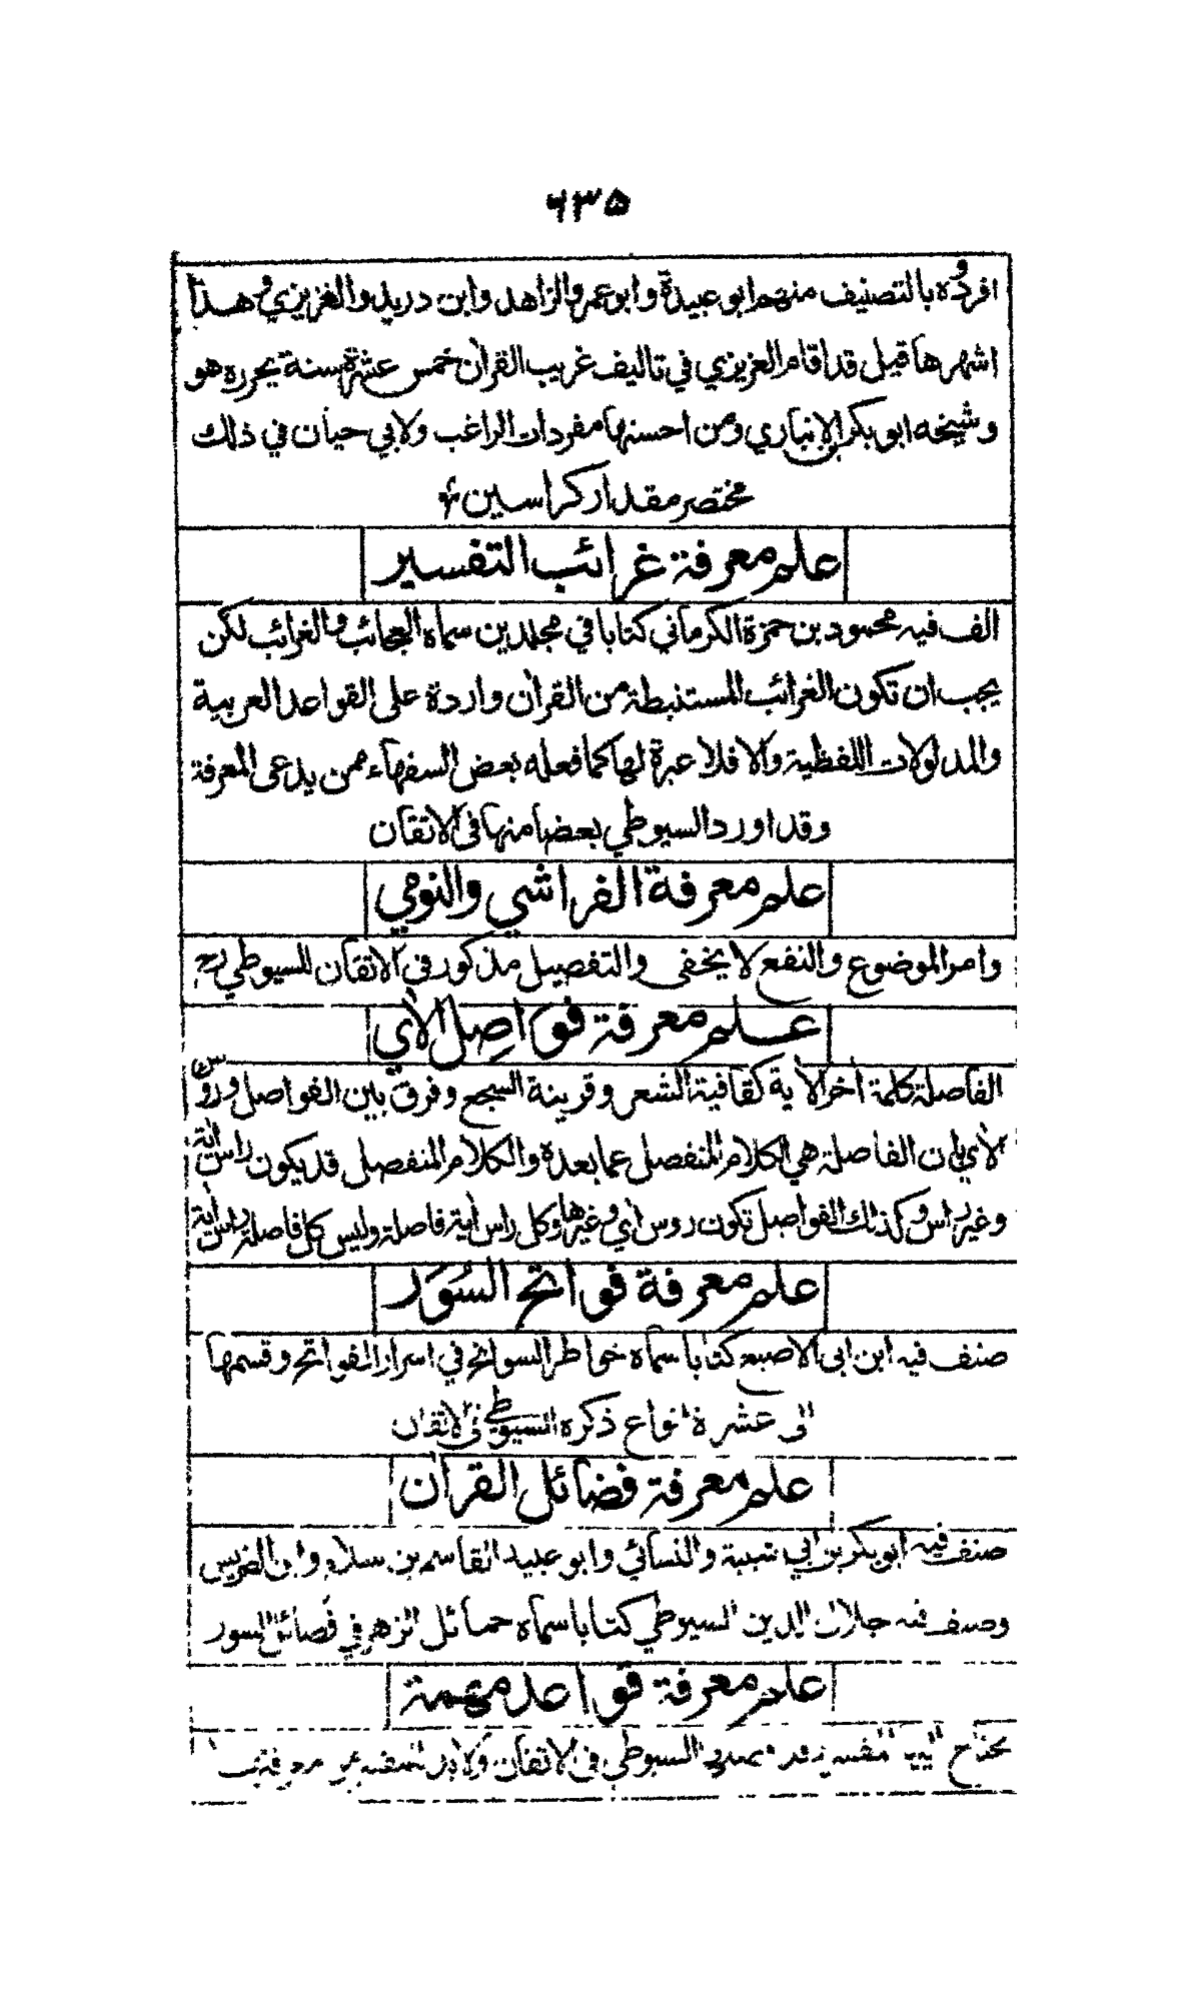 ٦٣٥
افردوه بالتصنيف منهم ابو عبيدة وابو عمر والزاهد وابن دريد والغزيزي وهذا
اشهرها قيل قد اقام العزيزي في تاليف غريب القرآن خمس عشرة سنة يحرره هو
وشيخه ابو بكر بن الانباري ومن احسنها مفردات الراغب ولابي حيان في ذلك
مختصر مقدار كراسين
علم معرفة غرائب التفسير
الف فيه محمود بن حمزة الكرماني كتابا في مجلدين سماه العجائب والغرائب لكن
يجب ان تكون الغرائب المستنبطة من القرآن واردة على القواعد العربية
والمدلولات اللفظية والا فلا عبرة لها كما فعله بعض السفهاء ممن يدعى المعرفة
وقد اورد السيوطي بعضا منها فى الاتقان
علم معرفة الفراشي والنومي
وامر الموضوع والنفع لا يخفى والتفصيل مذكور فى الاتقان للسيوطي رح
علم معرفة فواصل الآي
الفاصلة كلمة آخر الآية كقافية الشعر وقرينة السجع وفرق بين الفواصل وروس
الآي بان الفاصلة هي الكلام المنفصل عما بعده والكلام المنفصل قد يكون راس آية
وغير راس وكذلك الفواصل تكون روس آي وغيرها وكل راس آية فاصلة وليس كل فاصلة راس آية
علم معرفة فواتح السُوَر
صنف فيه ابن ابى الاصبع كتابا سماه خواطر السوانح في اسرار الفواتح وقسمها
الى عشرة انواع ذكره السيوطي فى الاتقان
علم معرفة فضائل القرآن
صنف فيه ابو بكر بن ابي شيبة والنسائي وابو عبيد القاسم بن سلام وابن الضريس
وصنف فيه جلال الدين السيوطي كتابا سماه حمائل الزهر في فضائل السور
علم معرفة قواعد مهمة
يحتاج اليها المفسر السيوطي فى الاتقان ولابد للمفسر من معرفتها